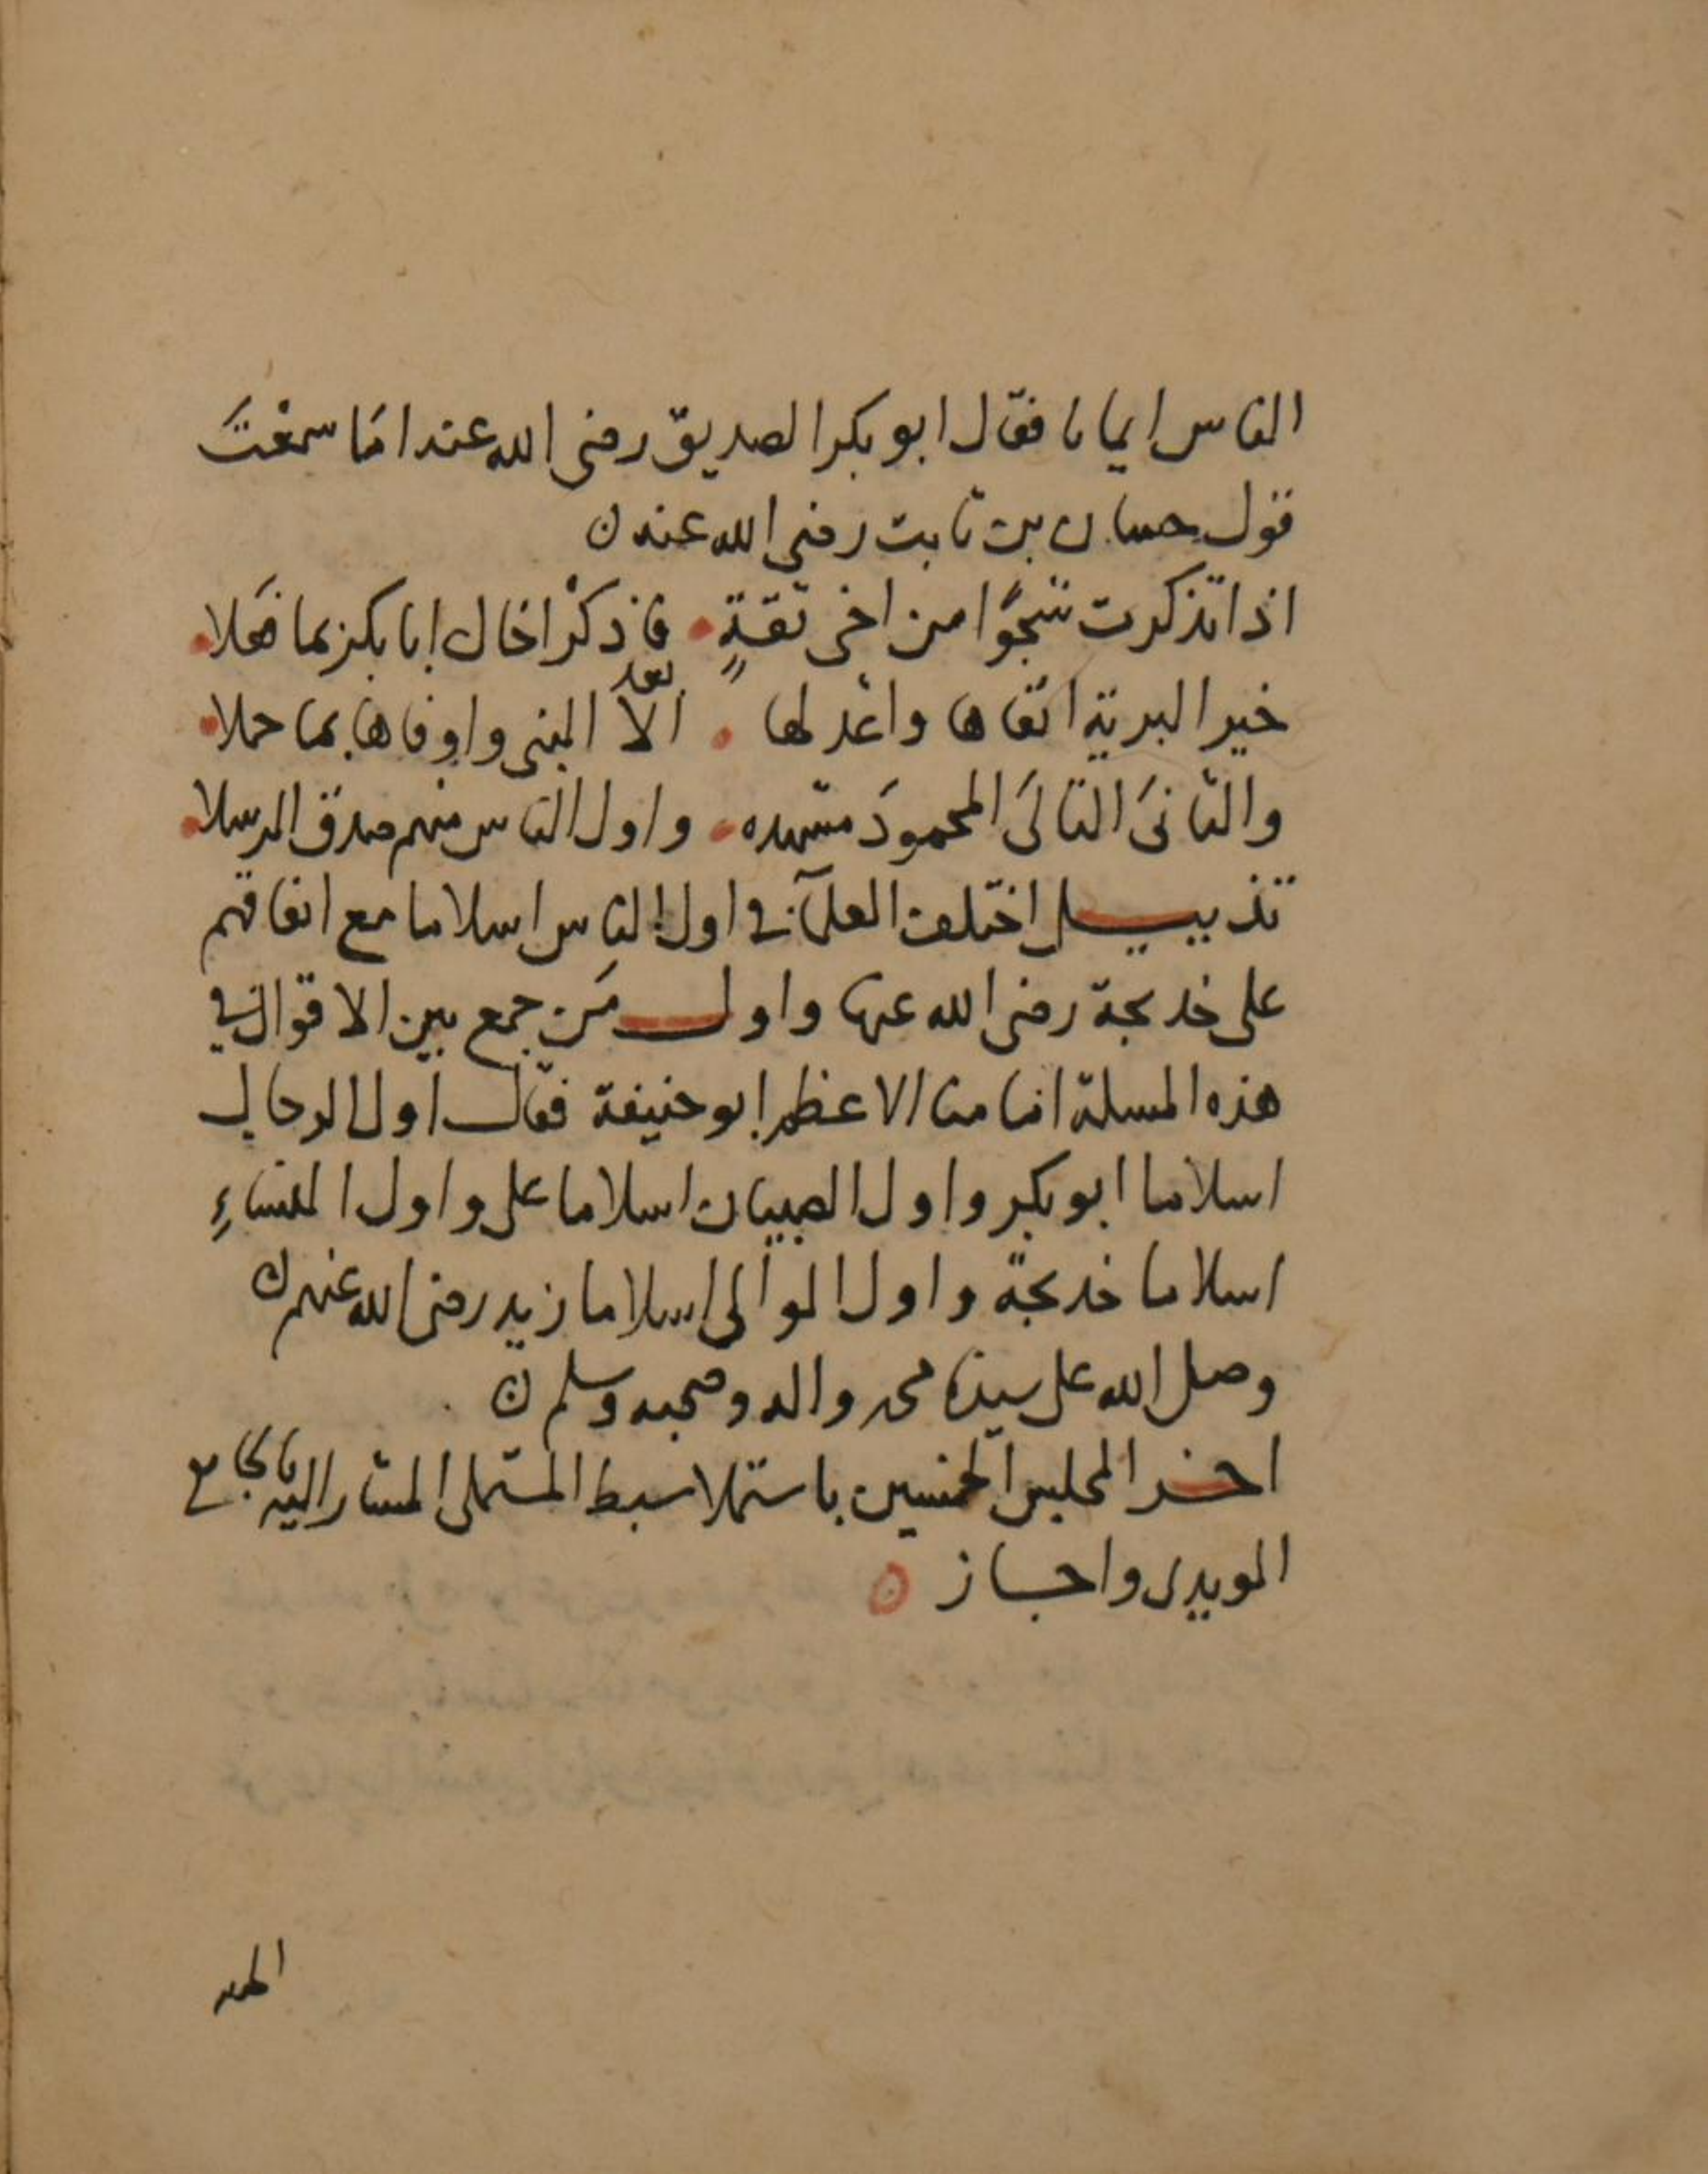 الناس ايمانا فقال ابو بكر الصديق رضى الله عنه امَا سمعْتَ
قول حسان بن ثابت رضى الله عنه ن
اذا تذكرت شجوًا من اخى ثقةٍ • فاذكرْ اخاك ابا بكر بما فعَلا •
خير البرية اتقاها واعْدلها • الّا النبى واوفاها بما حملا •
بعد
والثانىَ التالىَ المحمودَ مشهده • واول الناس منهم صدق الرسلا •
تذييل اختلف العلمآء في اول الناس اسلاما مع اتفاقهم
على خديجة رضى الله عنها واول مَن جمع بين الاقوال في
هذه المسلة امامنا الاعظم ابو حنيفة فقال اول الرجال
اسلاما ابو بكر واول الصبيان اسلاما على واول النساءِ
اسلاما خديجة واول الموالى اسلاما زيد رضى الله عنهم ن
وصلى الله على سيدنا محمد واله وصحبه وسلم ن
اخر المجلس الخمسين باستملا سبط المستملى المشار اليه بالجامع
المويدى واجاز
الحمد